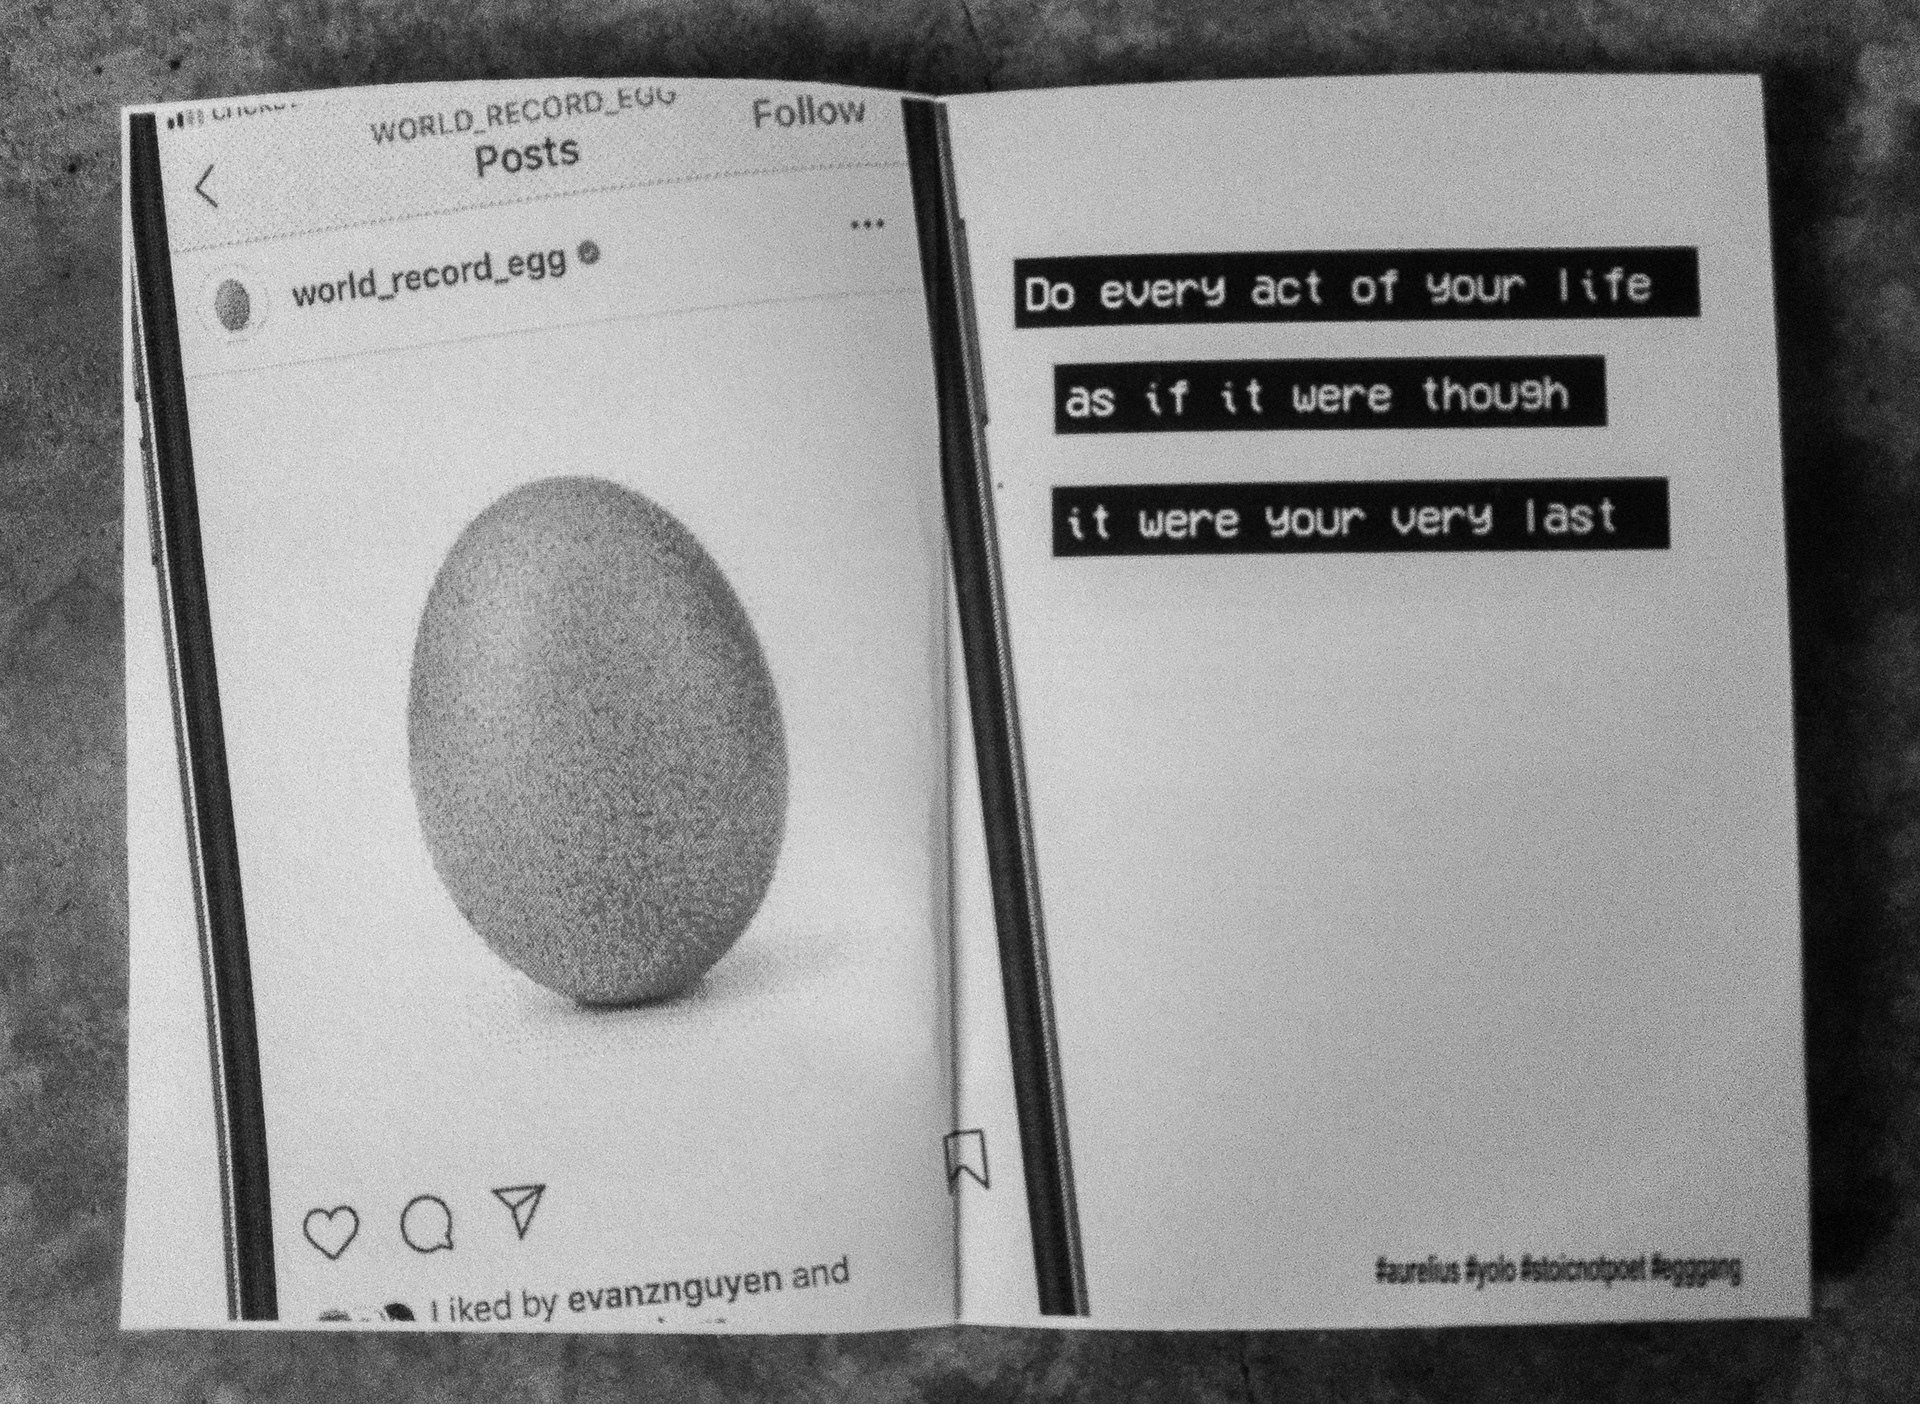 WORLD_RECORD_EGG
Follow
Posts
world_record_egg
Liked by evanznguyen and
Do every act of your life
as if it were though
it were your very last
#aurelius #yolo #stoicnotpoet #egggang